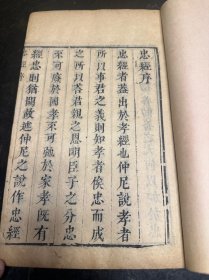 忠經序
忠經者蓋出於孝經也仲尼說孝者
所以事君之義則知孝者俟忠而成
之所以答君親之恩明臣子之分忠
不可廢於國孝不可弛於家孝既有
經忠則猶闕故述仲尼之說作忠經